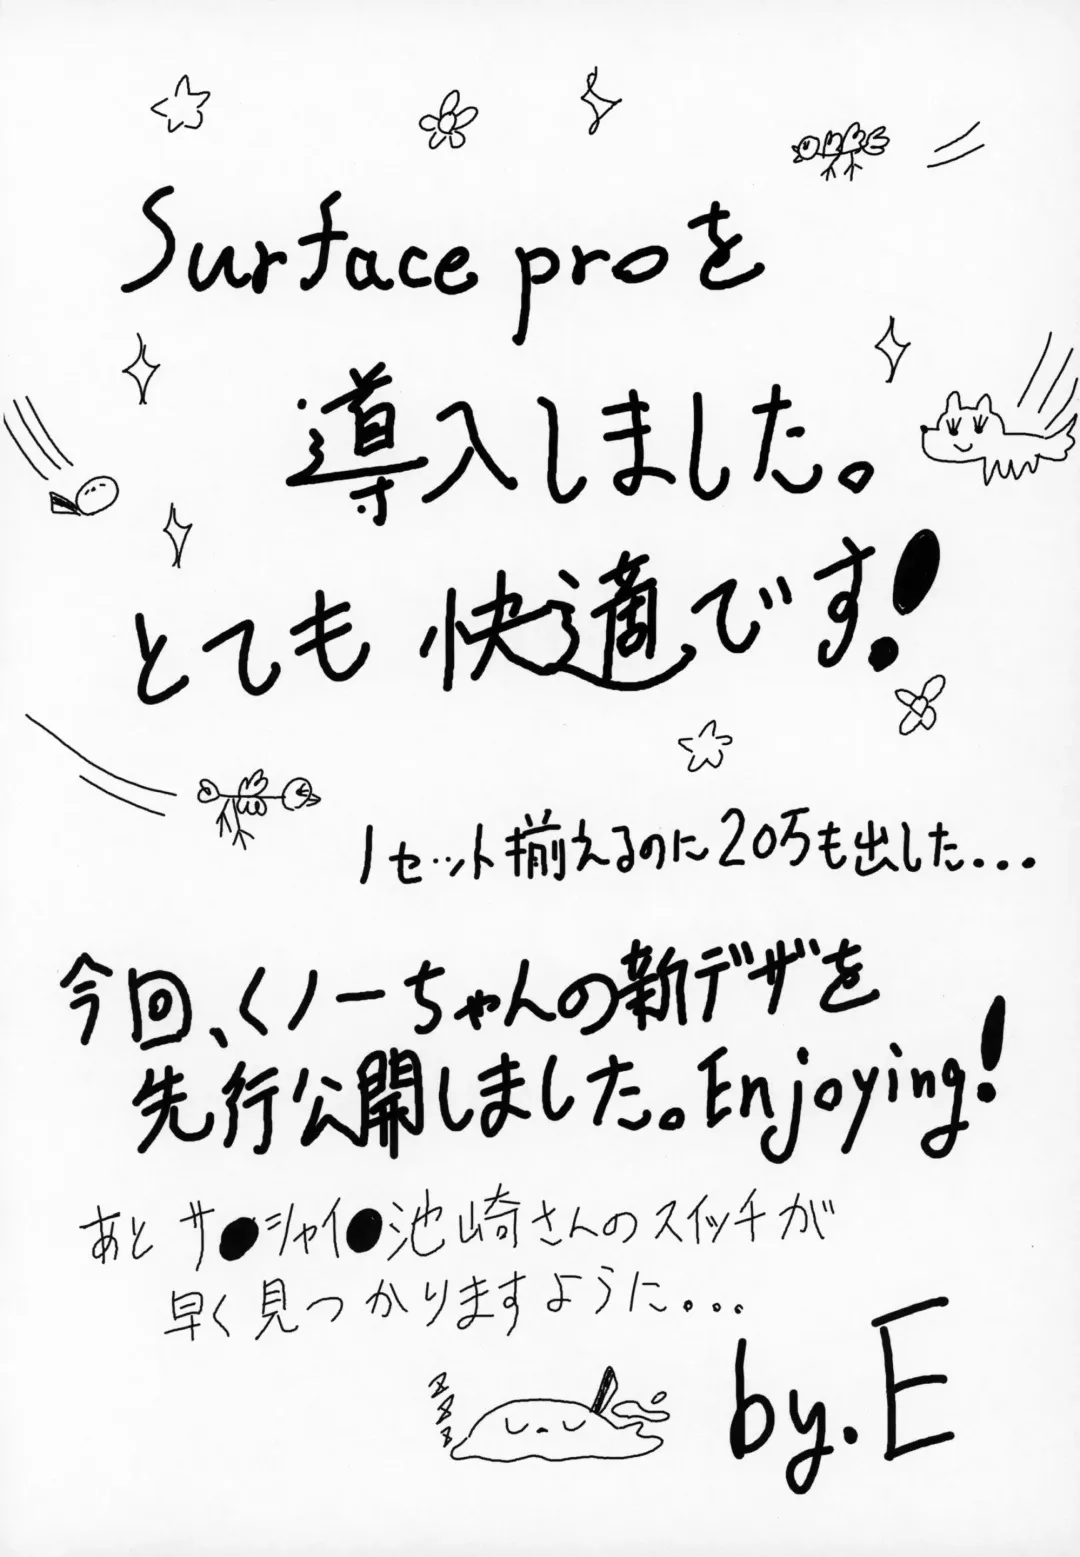 Surface proを
導入しました。
とても快適です!
1セット揃えるのに20万も出した...
今回、くノーちゃんの新デザを
先行公開しました。Enjoying!
あと サ●シャイ●池崎さんのスイッチが
早く見つかりますように...
by.E
zzz